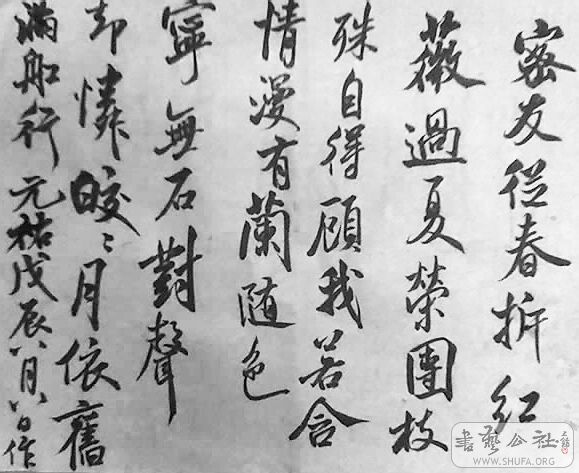 密友從春拆紅
薇過夏榮團枝
殊自得顧我若含
情漫有蘭隨色
寧無石對聲
却憐皎々月依舊
滿船行 元祐戊辰八月八日作
書藝公社
WWW.SHUFA.ORG